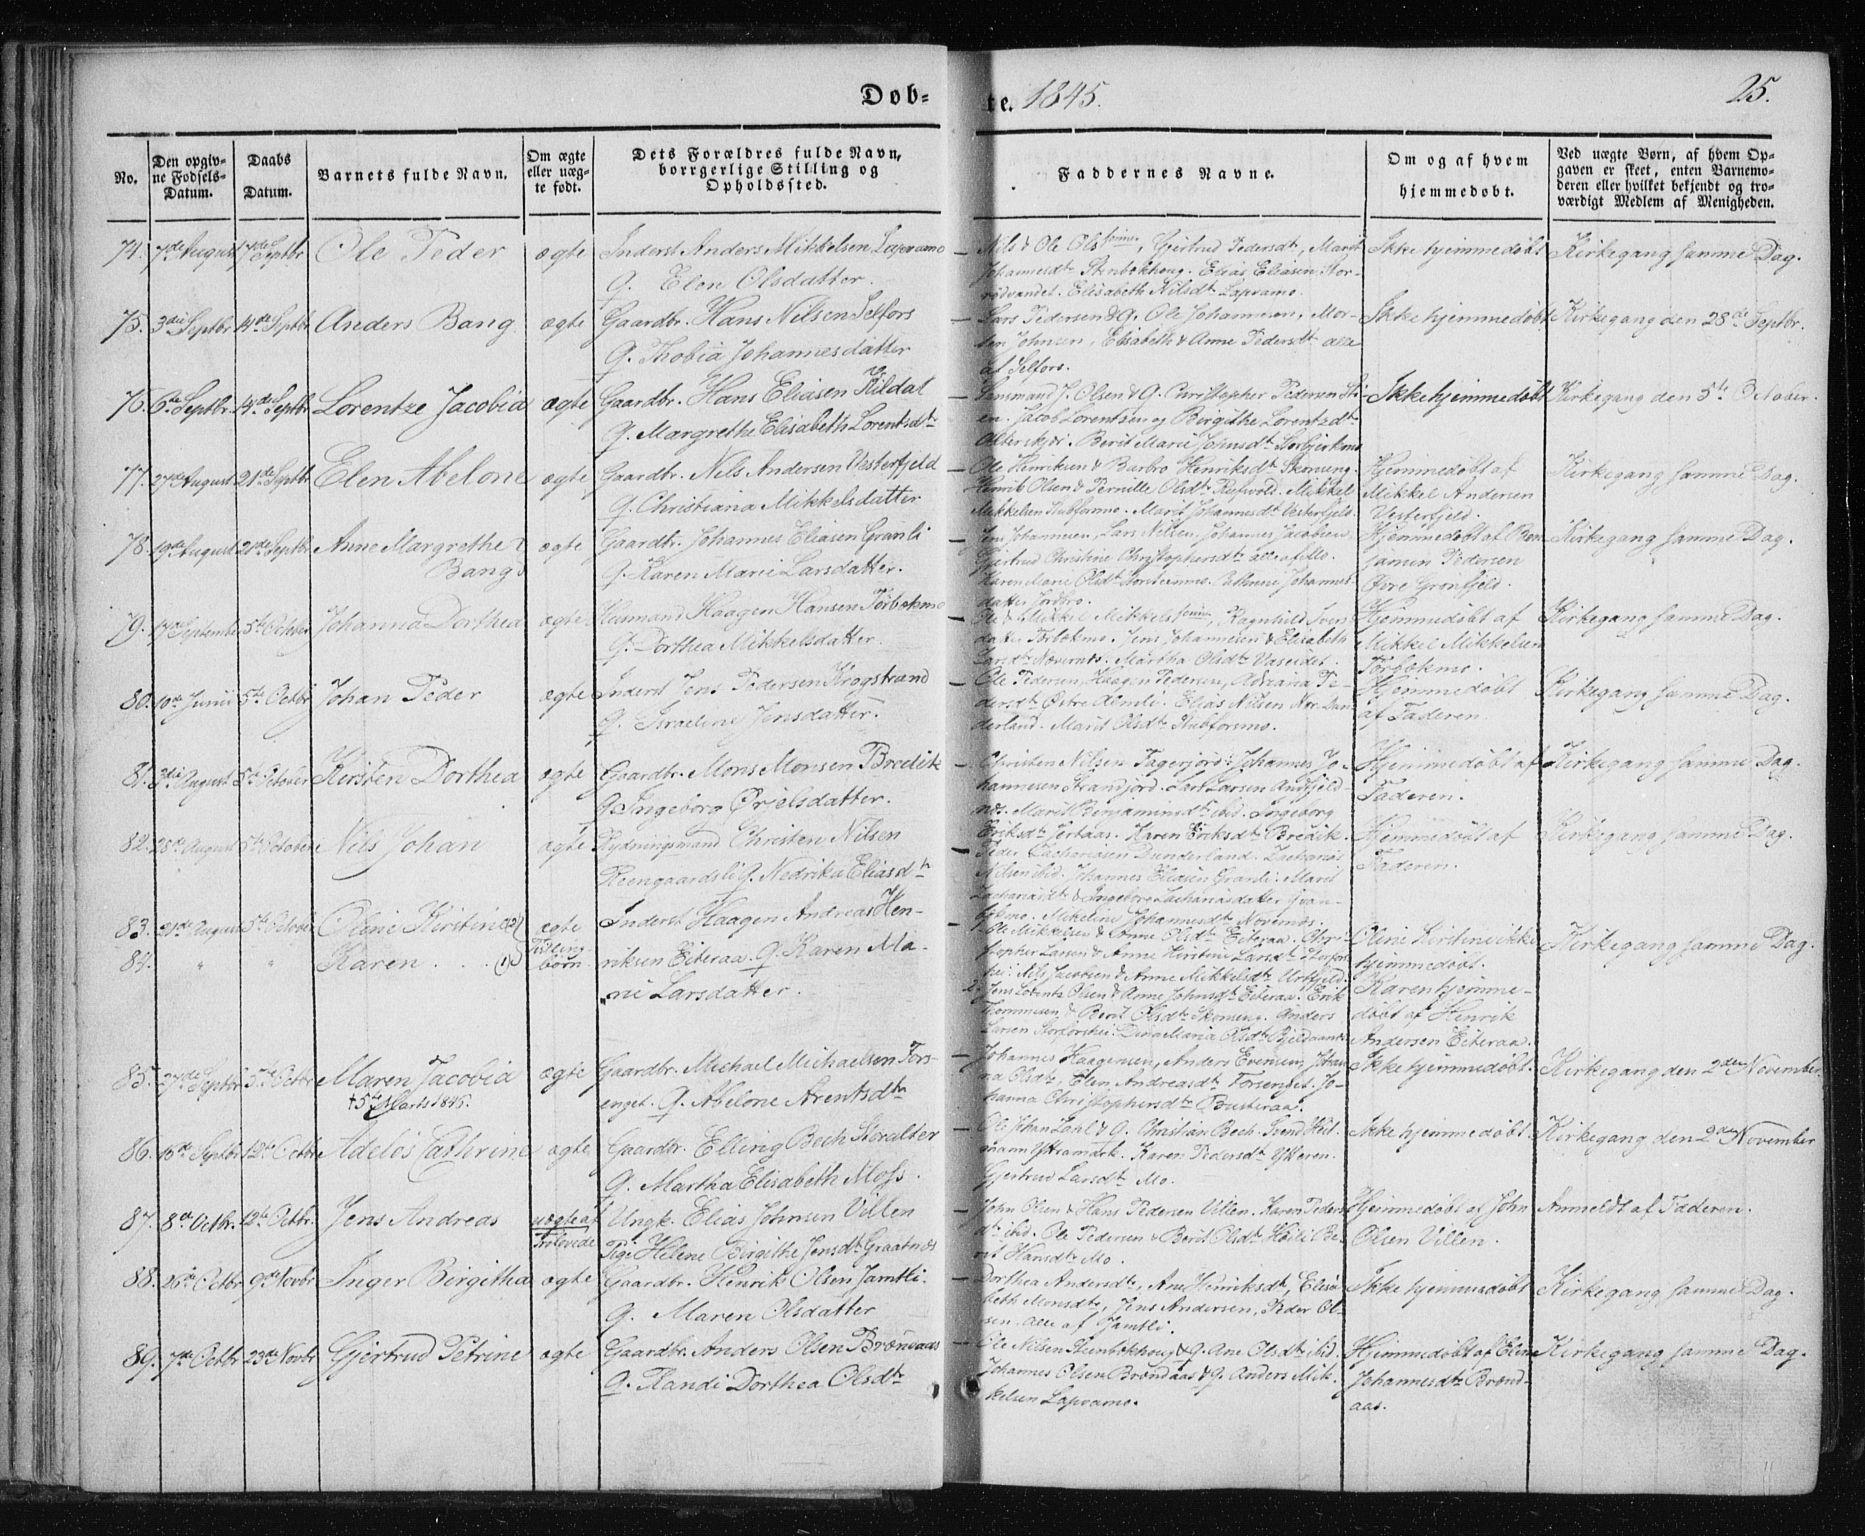 Dob-
te. 1845.
25.
No.
Den opgiv-
ne Fodsels-
Datum.
Daabs
Datum.
Barnets fulde Navn.
Om ægte
eller uæg-
te født.
Dets Forældres fulde Navn,
borrgerlige Stilling og
Opholdssted.
Faddernes Navne.
Om og af hvem
hjemmedøbt.
Ved uægte Børn, af hvem Op-
gaven er skeet, enten Barnemo-
deren eller hvilket bekjendt og tro-
værdigt Medlem af Menigheden.
74. 7de August 7de Septbr Ole Peder ægte Inderst Anders Mikkelsen Lapvamo
G. Elen Olsdatter.
Nils & Ole Ols Gjertrud Pedersdt, Marit
Johannesdt Stenbekhoug. Elias Eliasen Stor-
Elisabeth Nilsdt Lapvamo.
Ikke hjemmedøbt
Kirkegang samme Dag.
75. 3die Septbr 14de Septbr Anders Bang ægte Gaardbr. Hans Nilsen Selfors
G. Thobia Johannesdatter
Lars Pedersen & G. Ole Johannesen, Mor-
ten Johnsen, Elisabeth & Anne Pedersdt alle
af Selfors.
Ikke hjemmedøbt
Kirkegang den 28de Septbr.
76. 6te Septbr 14de Septbr Lorentze Jacobia ægte Gaardbr. Hans Eliasen Kildal
G. Margrethe Elisabeth Lorentsdt
Lensmand J. Olsen & G. Christopher Pedersen
en. Jacob Lorentsen og Birgithe Lorentzdt
Berit Marie Johnsdt
Ikke hjemmedøbt
Kirkegang den 5te October.
77. 27de August 21de Septbr Elen Abelone ægte Gaardbr. Nils Andersen Vesterfjeld
G. Christiana Mikkelsdatter
Ole Henriksen & Barbro Henriksdt Skonseng.
Henrik Olsen & Pernille Olsdt Mikkel
Mikkelsen Stubformo. Marit Johannesdt Vesterfjeld.
Hjemmedøbt af
Mikkel Andersen
Vesterfjeld.
Kirkegang samme Dag.
78. 19de August 21de Septbr Anne Margrethe
Bang ægte Gaardbr. Johannes Eliasen Granli
G. Karen Marie Larsdatter.
Jens Johannesen, Lars Nilsen, Johannes Jacobsen,
Gjertrud Christine Christophersdt alle af Mo.
Karen Marie Olsdt Cathrine Johannes
datter Jordbro.
Hjemmedøbt af Ben-
jamin Pedersen
Øvre Grønfjeld.
Kirkegang samme Dag.
79. 17de September 5te October Johanna Dorthea ægte Huusmand Haagen Hansen Torbekmo
G. Dorthea Mikkelsdatter.
Ole & Mikkel Mikkels Ragnhild Sven
datter Torbekmo. Jens Johannesen & Elisabeth
Larsdt Nævernes. Martha Olsdt
Hjemmedøbt af
Mikkel Mikkelsen
Torbekmo.
Kirkegang samme Dag.
80. 10de Junii 5te Octbr Johan Peder ægte Inderst Jens Pedersen Krogstrand
G. Israeline Jensdatter.
Ole Pedersen, Haagen Pedersen, Adriana Pe-
dersdt Østre Almli. Elias Nilsen Nor. Dun-
derland. Marit Olsdt Stubformo.
Hjemmedøbt
af Faderen
Kirkegang samme Dag.
81. 3die August 5te October Kirsten Dorthea ægte Gaardbr. Mons Monsen Bredek
G. Ingeborg Ørjelsdatter.
Christen Nilsen Fagerjord: Johannes Jo-
hannesen Strandjord. Lars Larsen Andfjeld-
næs. Marit Benjaminsdt ibid. Ingeborg
Eriksdt Karen Eriksdt Bredek.
Hjemmedøbt af
Faderen.
Kirkegang samme Dag.
82. 28de August 5te October Nils Johan ægte Rydningsmand Christen Nilsen
Reengaardsli G. Nedrika Eliasdt
Peder Zachariasen Dunderland. Zacharias
Nilsen ibid. Johannes Eliasen Granli: Marit
Zachariasdt & Ingeborg Zachariasdatter
Mikeline Johannesdt Nævernæs.
Hjemmedøbt af
Faderen.
Kirkegang samme Dag.
83. 21de August 5te October Oline Kirstine (2) ægte
84. " " Karen . . . (1) Tvilling-
børn Inderst Haagen Andreas Hen-
riksen Eiteraa. G. Karen Ma-
rie Larsdatter.
1. Ole Mikkelsen & Anne Olsdt Eiteraa. Chri-
stopher Larsen & Anne Kirstine Larsdt Storfors-
hei: Nils Jacobsen & Anne Mikkelsdt Urtfjeld.
2. Jens Lorents Olsen & Anne Johnsdt Eiteraa. Erik
Thommesen & Berit Olsdt Skonseng. Anders
Larsen Storforshei: Dina Maria Olsdt
Oline Kirstine ikke
hjemmedøbt.
Karen hjemme-
døbt af Henrik
Andersen Eiteraa.
Kirkegang samme Dag.
85. 7de Septbr 5te Octbr Maren Jacobia
† 5te Marts 1846. ægte Gaardbr. Michael Michaelsen Fors-
enget. G. Abelone Arentsdt
Johannes Haagensen, Anders Evensen, Johan
na Olsdt, Elen Andreasdt Forsenget. Jo-
hanna Christophersdt Busteraa.
Ikke hjemmedøbt.
Kirkegang den 2den November.
86. 16de Septbr 12te Octbr Adelos Cathrine ægte Gaardbr. Elling Bech Storalter
G. Martha Elisabeth Moss.
Ole Johan Dahl & G. Christian Bech. Svend Heit-
mann Karen Pedersdt Ytteren.
Gjertrud Larsdt Mo.
Ikke hjemmedøbt.
Kirkegang den 2den November
87. 8de Octbr. 12te Octbr. Jens Andreas uægte af
Trolovede Ungk. Elias Johnsen Villen
Pige Helene Birgithe Jensdt Graatnæs
John Olsen & Hans Pedersen Villen. Karen Peders
dt ibid. Ole Pedersen & Berit Olsdt Be-
rit Hansdt Mo.
Hjemmedøbt af John
Olsen Villen.
Anmeldt af Faderen.
88. 26de Octbr 9de Novbr Inger Birgitha ægte Gaardbr. Henrik Olsen Jamtli.
G. Maren Olsdatter
Dorthea Andersdt, Ane Henriksdt, Elisa-
beth Monsdt, Jens Andersen, Peder Ol-
sen. alle af Jamtli.
Ikke hjemmedøbt
Kirkegang samme Dag.
89. 7de Octbr 23de Novbr Gjertrud Petrine ægte Gaardbr. Anders Olsen Brændaas
G. Randi Dorthea Olsdt
Ole Nilsen Stenbekhoug & G. Ane Olsdt ibid.
Johannes Olsen Brændaas & G. Anders Mik-
kelsen Lapvamo.
Hjemmedøbt af Eline
Johannesdt Brænd-
aas.
Kirkegang samme Dag.